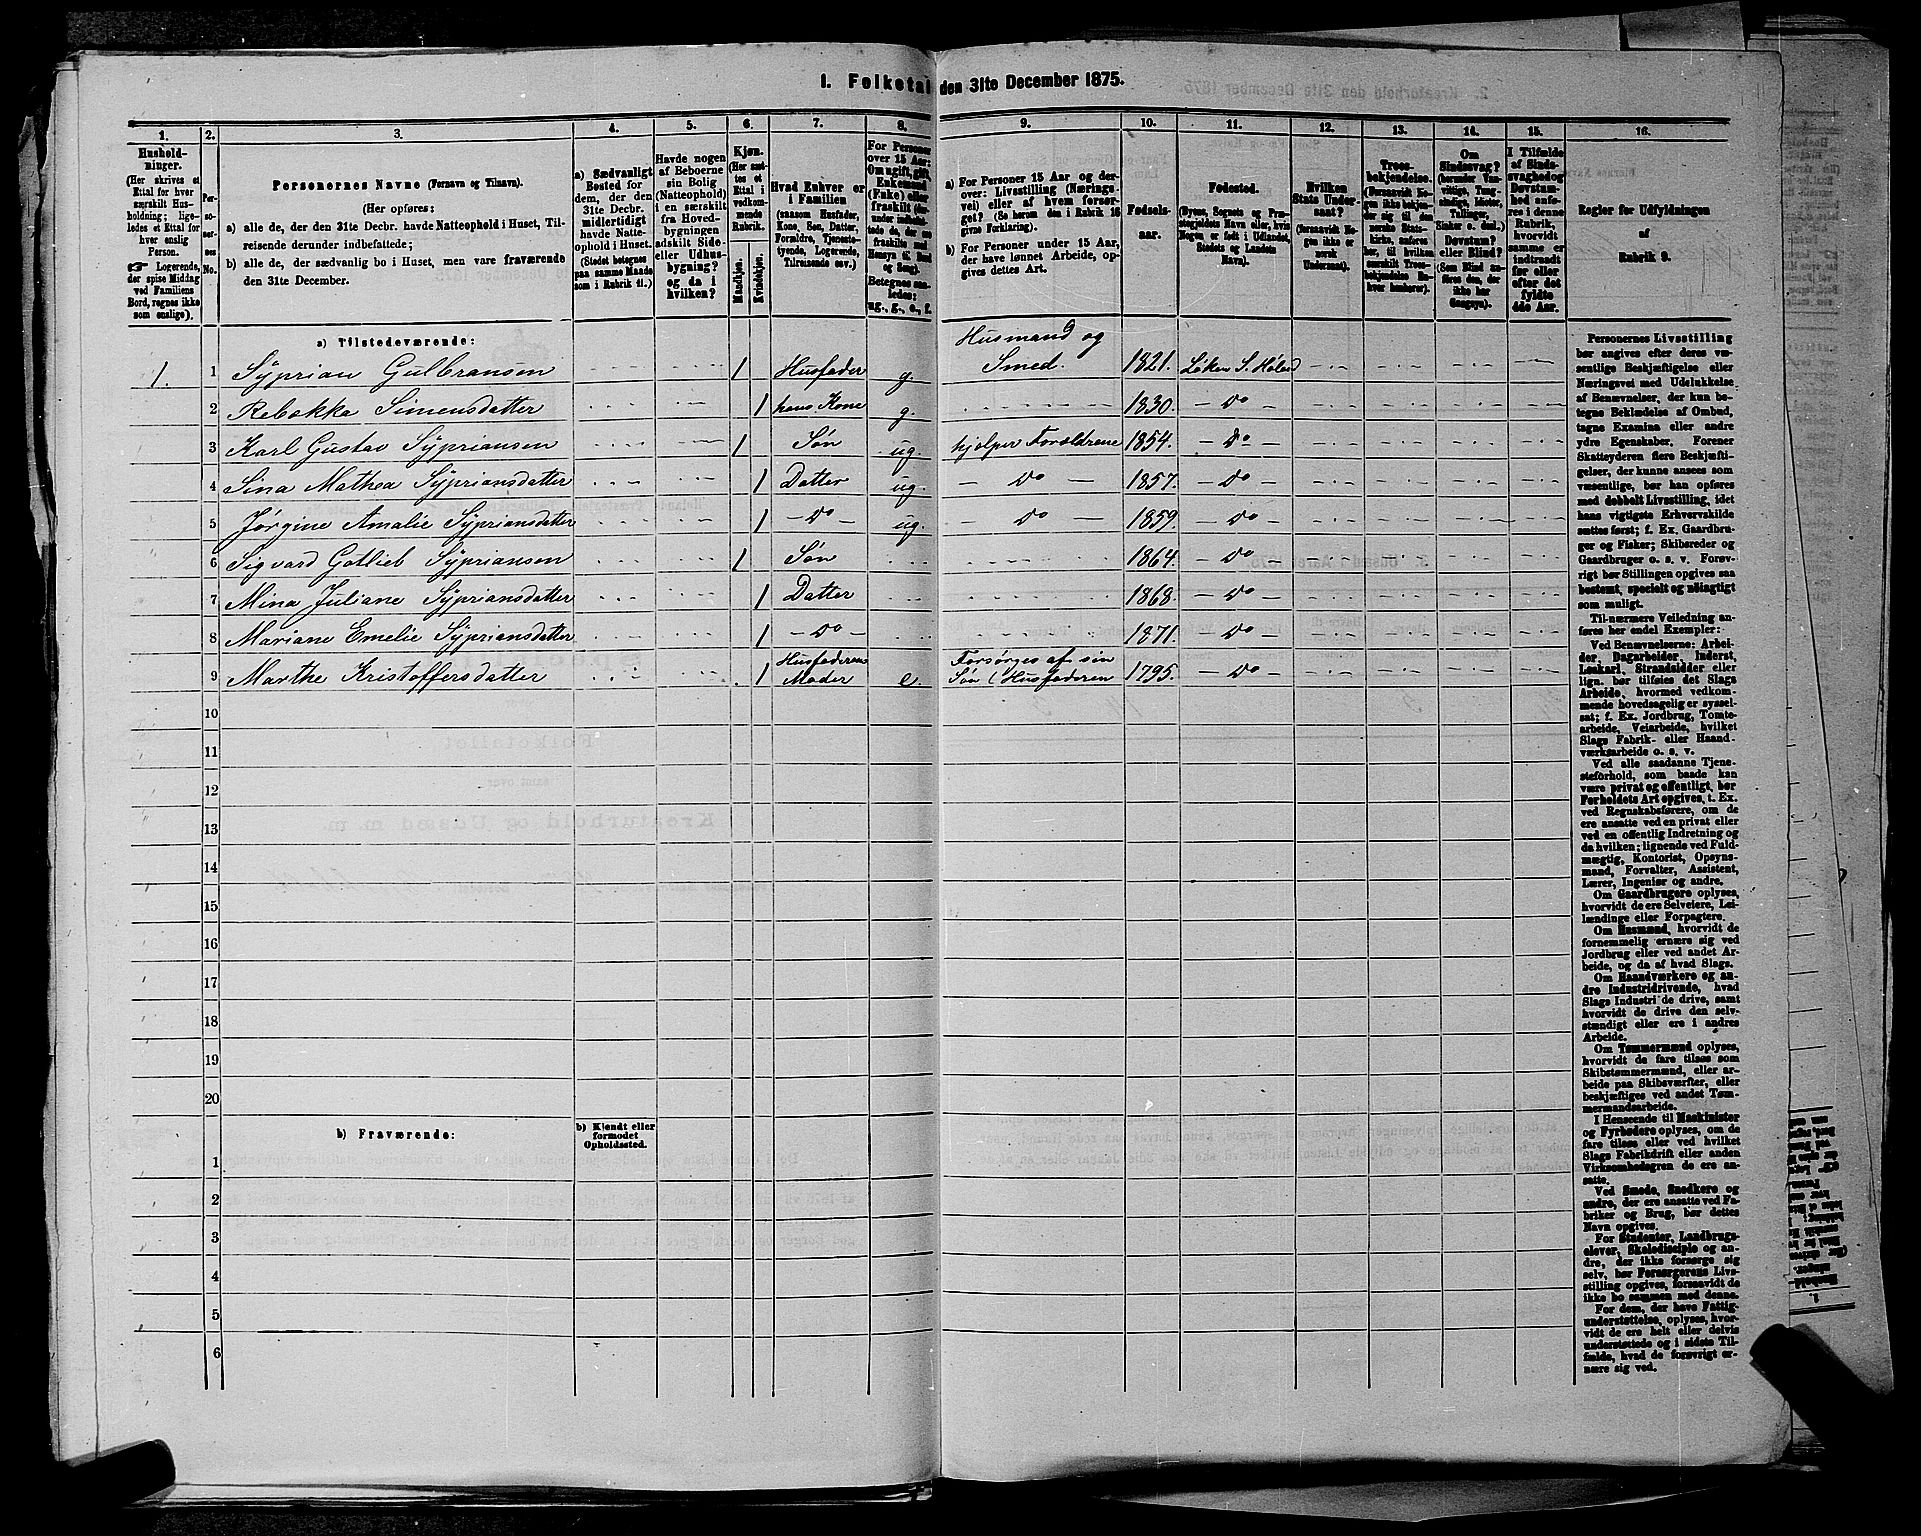 1. Folketal den 31te December 1875.
1. 2. 3. 4. 5. 6. 7. 8. 9. 10. 11. 12. 13. 14. 15. 16.
Hushold-
ninger.
(Her skrives et
Ettal for hver
særskilt Hus-
holdning; lige-
ledes et Ettal for
hver enslig
Person.
☞ Logerende,
der spise Middag
ved Familiens
Bord, regnes ikke
som enslige).
Personernes Navne (Fornavn og Tilnavn).
(Her opføres:
a) alle de, der den 31te Decbr. havde Natteophold i Huset, Til-
reisende derunder indbefattede;
b) alle de, der sædvanlig bo i Huset, men vare fraværende
den 31te December.
a) Sædvanligt
Bosted for
dem, der den
31te Decbr.
midlertidigt
havde Natte-
ophold i Huset.
(Stedet betegnes
paa samme Maade
som i Rubrik 11.)
Havde nogen
af Beboerne
sin Bolig
(Natteophold)
i en særskilt
fra Hoved-
bygningen
adskilt Side-
eller Udhus-
bygning?
og da i
hvilken?
Kjøn.
(Her sæt-
tes et
Ettal i
vedkom-
mende
Rubrik.
Mandkjøn.
Kvindekjøn.
Hvad Enhver er
i Familien
(saasom Husfader,
Kone, Søn, Datter,
Forældre, Tjeneste-
tyende, Logerende,
Tilreisende osv.)
For Personer
over 15 Aar:
Om ugift, gift,
Enkemand
(Enke) eller
fraskilt
Betegnes saa-
ledes:
ug., g., e., f.
a) For Personer 15 Aar og der-
over: Livsstilling (Nærings-
vei) eller af hvem forsør-
get? (Se herom den i Rubrik 16
givne Forklaring).
b) For Personer under 15 Aar,
der have lønnet Arbeide, op-
gives dettes Art.
Fødsels-
aar.
Fødested.
(Byens, Sognets og Præ-
stegjeldets Navn eller, hvis
Nogen er født i Udlandet,
Stedets og Landets
Navn).
Hvilken
Stats Under-
saat?
(forsaavidt No-
gen ikke er
norsk
Undersaat).
Troes-
bekjendelse.
(Forsaavidt No-
gen ikke bekjen-
der sig til den
norske Stats-
kirke, anføres
her, til hvilken
særskilt Troes-
bekjendelse En-
hver henhører).
Om
Sindssvag?
Døvstum?
eller Blind?
(Som Blind an-
føres den, der
ikke har
Gangsyn).
I Tilfælde
af Sinds-
svaghed og
Døvstum-
hed anfø-
res i denne
Rubrik,
hvorvidt
samme er
indtraadt
før eller
efter det
fyldte
4de Aar.
Regler for Udfyldningen
af
Rubrik 9.
a) Tilstedeværende:
Husmand og
1. 1 Syprian Gulbransen 1 Husfader g. Smed. 1821. Løken S. Høland
2 Rebekka Simensdatter 1 hans Kone g. 1830. - Do -
3 Karl Gustav Sypriansen 1 Søn ug. hjælper Forældrene 1854. - Do -
4 Sina Mathea Sypriansdatter 1 Datter ug. - Do - 1857. - Do -
5 Jørgine Amalie Sypriansdatter 1 - Do - ug. - Do - 1859. - Do -
6 Sigvard Gotlieb Sypriansen 1 Søn 1864. - Do -
7 Mina Juliane Sypriansdatter 1 Datter 1868. - Do -
8 Mariane Emelie Sypriansdatter 1 - Do - 1871. - Do -
Husfaderens Forsørges af sin
9 Marthe Kristoffersdatter 1 Moder e. Søn (Husfaderen 1795. - Do -
10
11
12
13
14
15
16
17
18
19
20
b) Fraværende:
b) Kjendt eller
formodet
Opholdssted.
1
2
3
4
5
6
Personernes Livsstilling
bør angives efter deres væ-
sentlige Beskjæftigelse eller
Næringsvei med Udelukkelse
af Benævnelser, der kun be-
tegne Beklædelse af Ombud,
tagne Examina eller andre
ydre Egenskaber. Forener
Skatteyderen flere Beskjæfti-
gelser, der kunne ansees som
væsentlige, bør han opføres
med dobbelt Livsstilling, idet
hans vigtigste Erhvervskilde
sættes først; f. Ex. Gaardbru-
ger og Fisker; Skibsreder og
Gaardbruger o. s. v. Forøv-
rigt bør Stillingen opgives saa
bestemt, specielt og nøiagtigt
som muligt.
Til nærmere Veiledning an-
føres her endel Exempler:
Ved Benævnelserne: Arbei-
der, Dagarbeider, Inderst,
Løskarl, Strandsidder eller
lign. bør tilføies det Slags
Arbeide, hvormed vedkom-
mende hovedsagelig er syssel-
sat; f. Ex. Jordbrug, Tomte-
arbeide, Veiarbeide, hvilket
Slags Fabrik- eller Haand-
værksarbeide o. s. v.
Ved alle saadanne Tjene-
steforhold, som baade kan
være privat og offentligt, bør
Forholdets Art opgives, t. Ex.
ved Regnskabsførere, om de
ere ansatte ved en privat eller
ved en offentlig Indretning og
da hvilken; lignende ved Fuld-
mægtig, Kontorist, Opsyns-
mand, Forvalter, Assistent,
Lærer, Ingeniør og andre.
Om Gaardbrugere oplyses,
hvorvidt de ere Selveiere, Lei-
lændinge eller Forpagtere.
Om Husmænd, hvorvidt de
fornemmelig ernære sig ved
Jordbrug eller ved andet Ar-
beide, og da af hvad Slags.
Om Haandværkere og an-
dre Industridrivende, hvad
Slags Industri de drive, samt
hvorvidt de drive den selv-
stændigt eller ere i andres
Arbeide.
Om Tømmermænd oplyses,
hvorvidt de fare tilsøs som
Skibstømmermænd, eller ar-
beide paa Skibsværfter, eller
beskjæftiges ved andet Tøm-
mermandsarbeide.
I Henseende til Maskinister
og Fyrbødere oplyses, om de
fare tilsøs eller ved hvilket
Slags Fabrikdrift eller anden
Virksomhedsgren de ere an-
satte.
Ved Smede, Snedkere og
andre, der ere ansatte ved Fa-
briker og Brug, bør dettes
Navn opgives.
For Studenter, Landbrugs-
elever, Skoledisciple og an-
dre, der ikke forsørge sig
selv, bør Forsørgerens Livs-
stilling opgives, forsaavidt de
ikke bo sammen med denne.
For dem, der have Fattig-
understøttelse, oplyses, hvor-
vidt de ere helt eller delvis
understøttede og i sidste Til-
fælde, hvad de forøvrigt er-
nære sig ved.